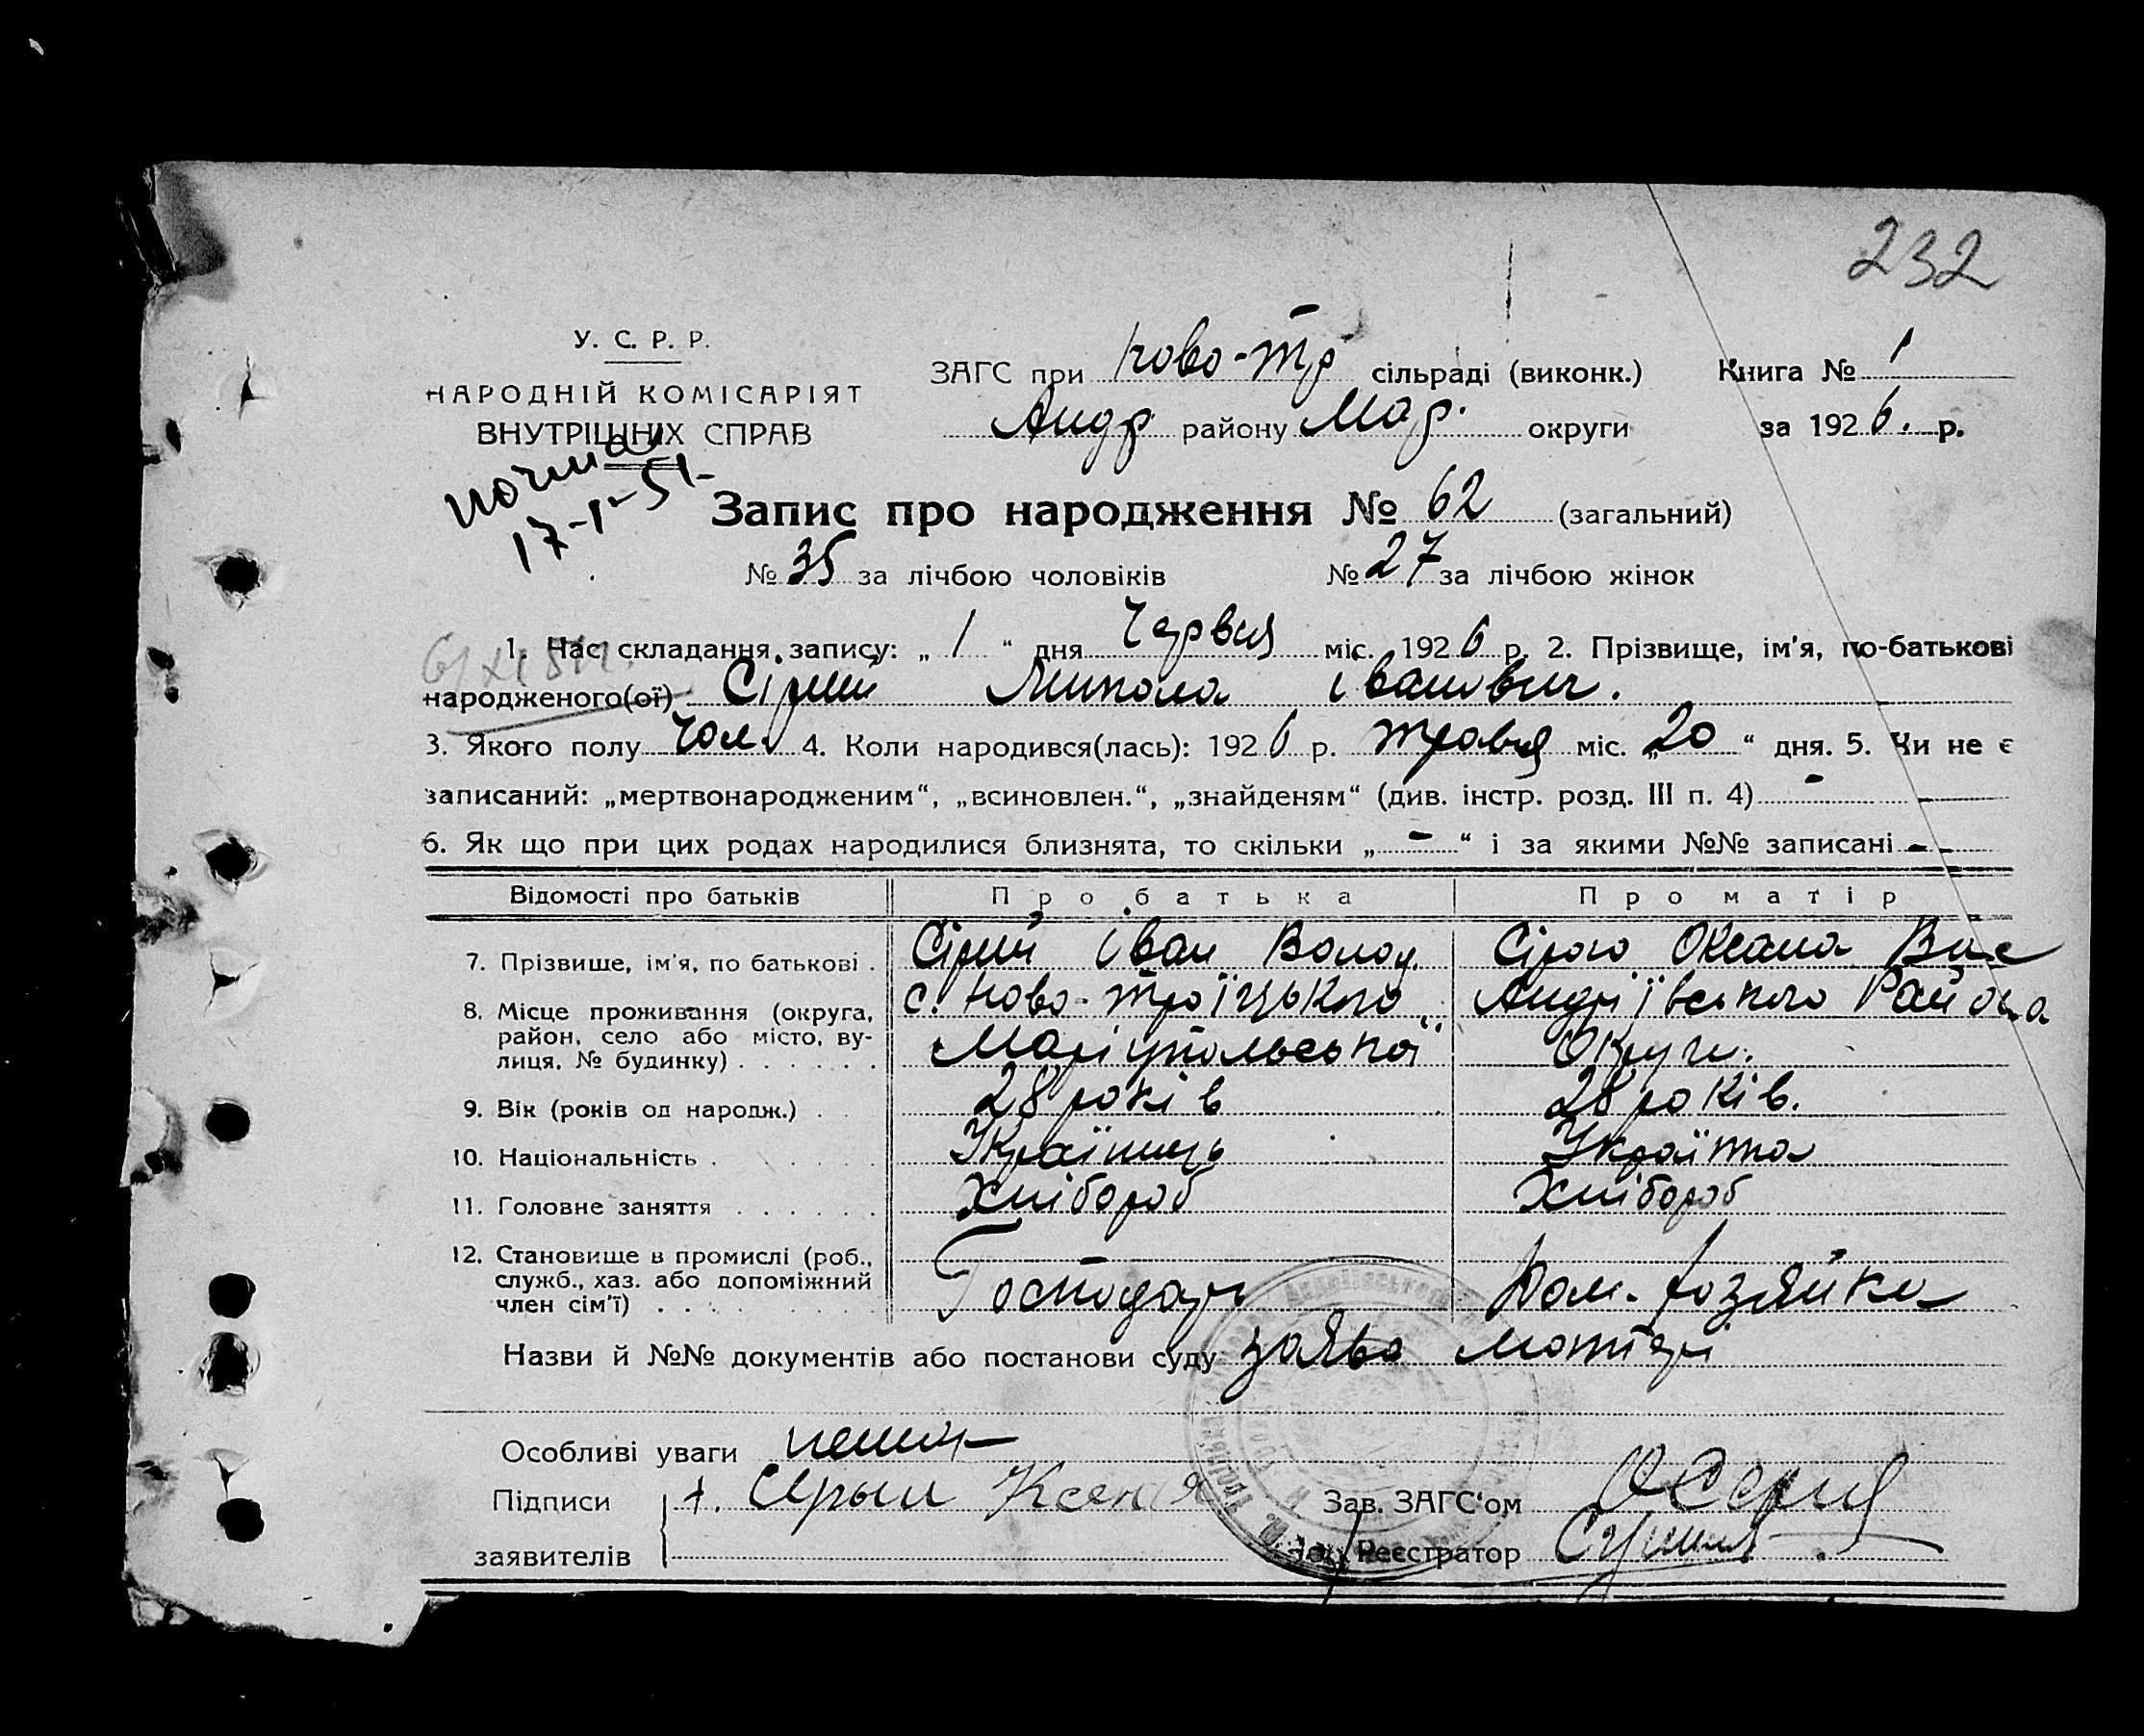 232
У. С. Р. Р.
НАРОДНІЙ КОМІСАРІЯТ
ВНУТРІШНІХ СПРАВ
ЗАГС при Ново-Тр сільраді (виконк.) Книга № 1
Андр району Мар. округи за 1926. р.
17-I-51
Запис про народження № 62 (загальний)
№ 35 за лічбою чоловіків № 27 за лічбою жінок
1. Час складання запису: „ 1 “ дня Червня міс. 1926 р. 2. Прізвище, ім'я, по-батькові
народженого(ої) Сірий Микола Іванович.
3. Якого полу Чол. 4. Коли народився(лась): 1926 р. травня міс. „20 “ дня. 5. Чи не є
записаний: „мертвонародженим“, „всиновлен.“, „знайденям“ (див. інстр. розд. III п. 4) -
6. Як що при цих родах народилися близнята, то скільки „ - “ і за якими №№ записані -
Відомості про батьків Про батька Про матір
7. Прізвище, ім'я, по батькові . Сірий Іван Волод. Сірою Оксана Вас
8. Місце проживання (округа, район, село або місто, вулиця, № будинку) . . . . . . с. Ново-Троїцького Андріївського Района
Маріупольської Округи.
9. Вік (років од народж.) . . 28 років 28 років.
10. Національність . . . . . . Українець Українка
11. Головне заняття . . . . . . Хлібороб Хлібороб
12. Становище в промислі (роб.,
служб., хаз. або допоміжний
член сім'ї) . . . . . . Господарь Дом. хозяйка
Назви й №№ документів або постанови суду заява матері
Особливі уваги немає
Підписи Серый Ксения Зав. ЗАГС'ом
заявителів Реєстратор